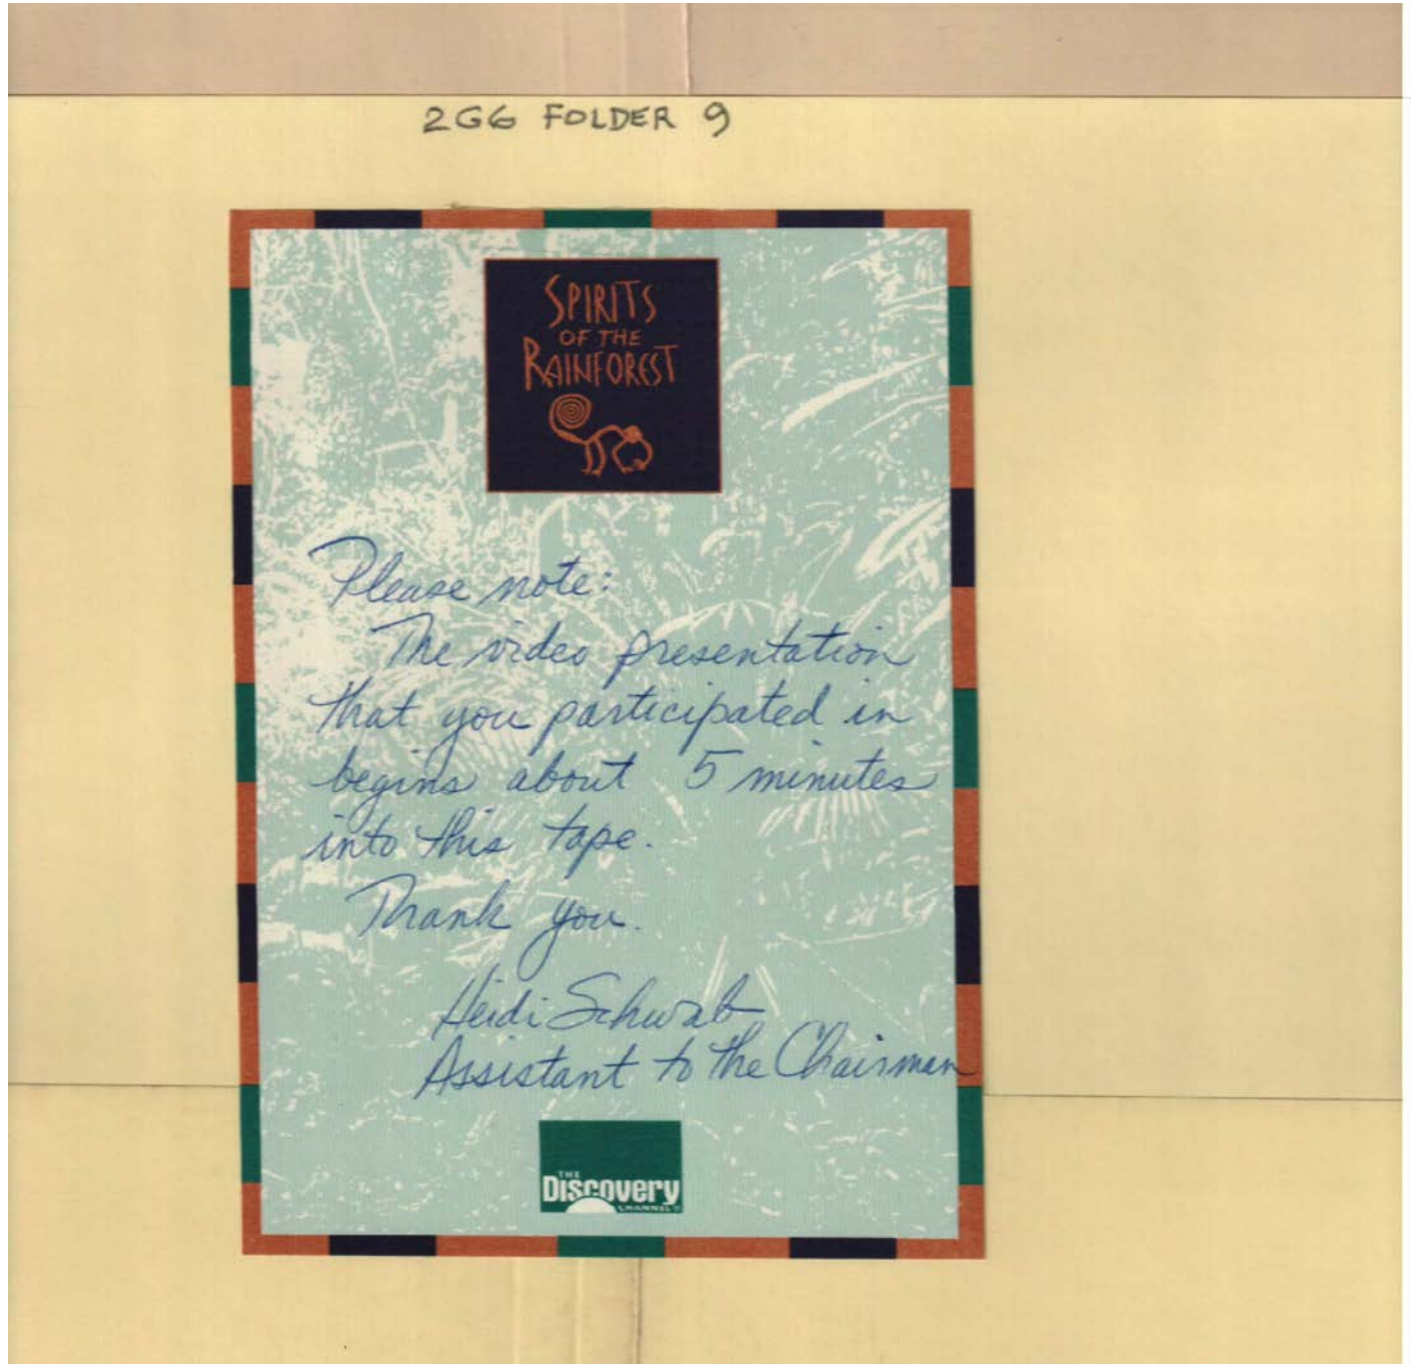 2G6 FOLDER 9
SPIRITS
OF THE
RAINFOREST
Please note:
The video presentation
that you participated in
begins about 5 minutes
into this tape.
Thank you.
Heidi Schwab
Assistant to the Chairman
THE
Discovery
CHANNEL